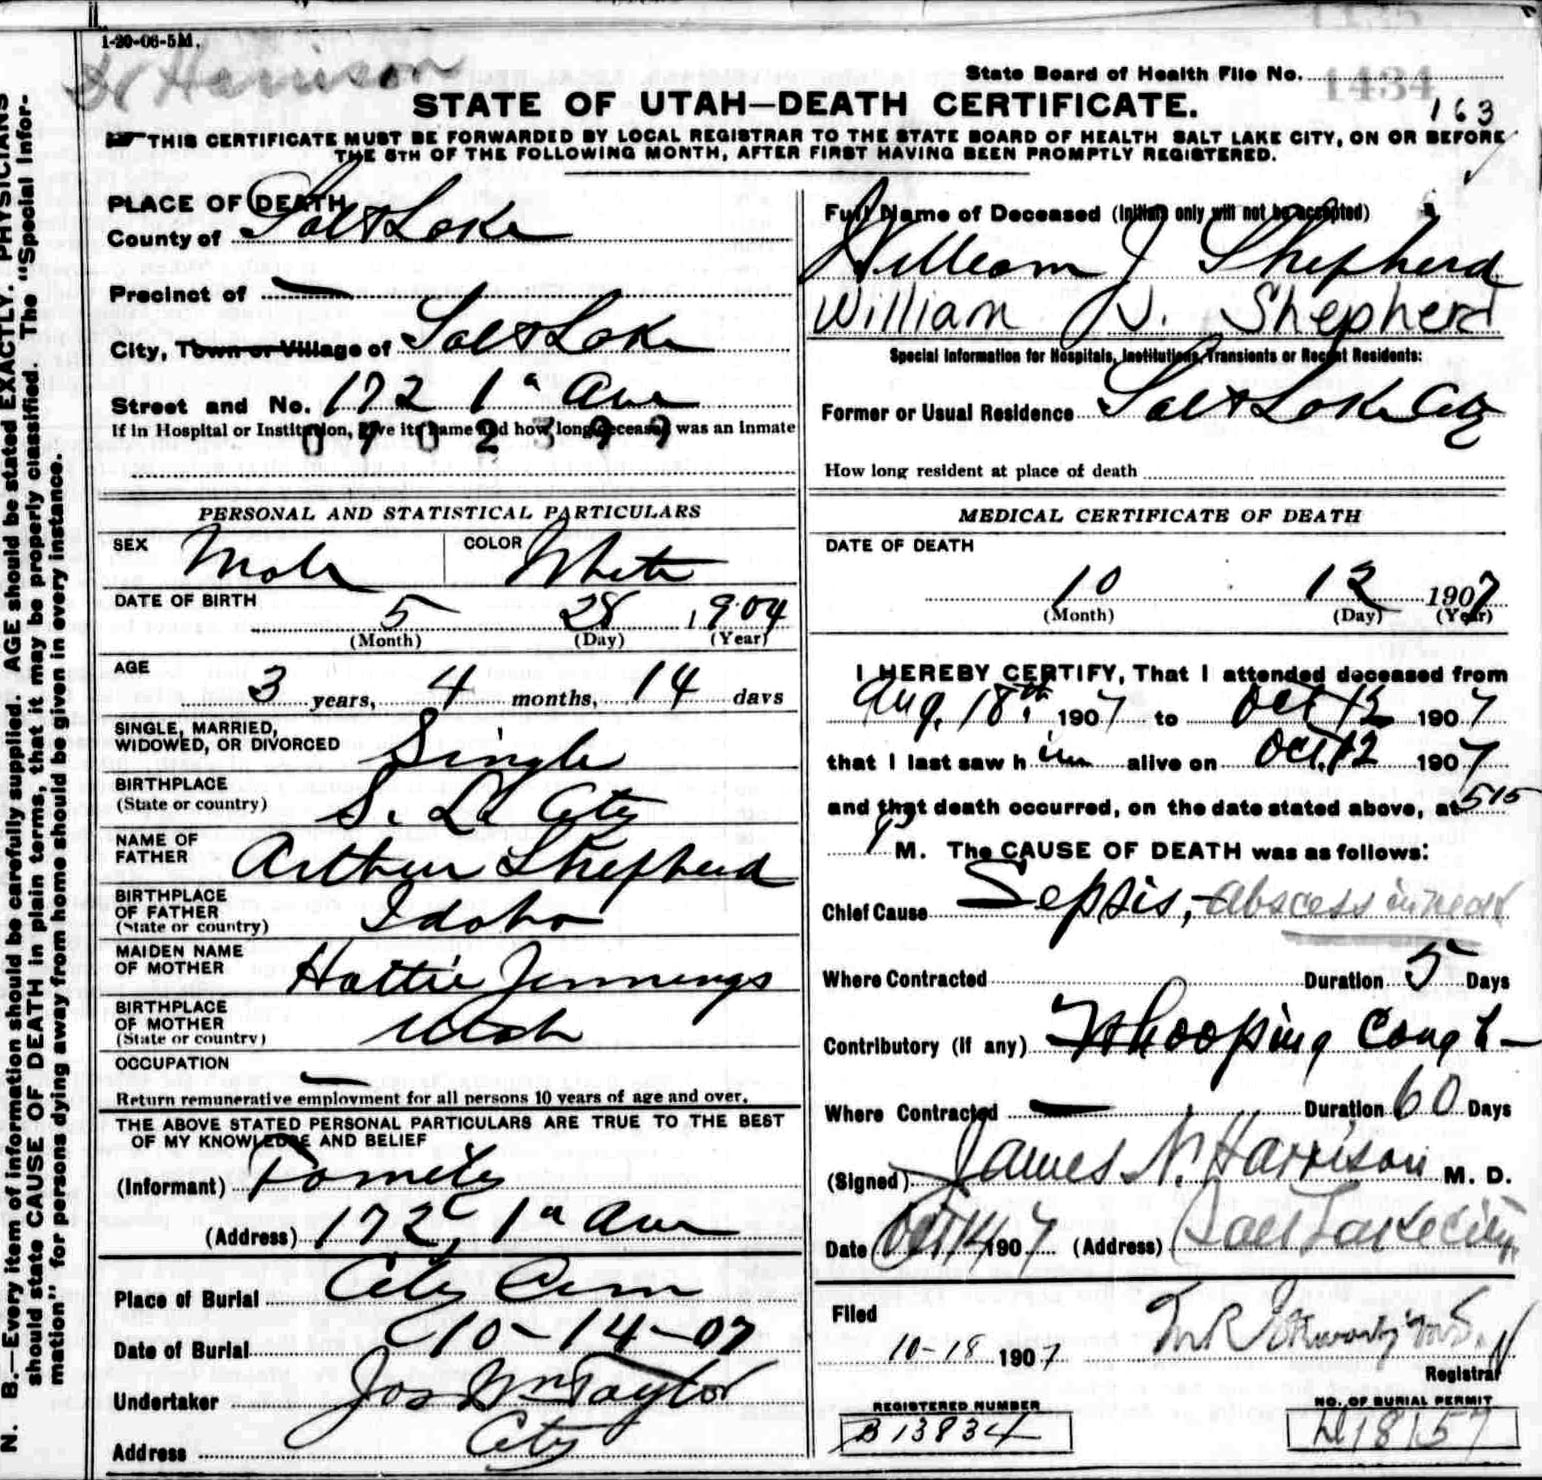 1-20-06-5M.
Dr Harrison
State Board of Health File No. 1434
163
STATE OF UTAH—DEATH CERTIFICATE.
THIS CERTIFICATE MUST BE FORWARDED BY LOCAL REGISTRAR TO THE STATE BOARD OF HEALTH SALT LAKE CITY, ON OR BEFORE
THE 5TH OF THE FOLLOWING MONTH, AFTER FIRST HAVING BEEN PROMPTLY REGISTERED.
PLACE OF DEATH
County of Salt Lake
Precinct of —
City, Town or Village of Salt Lake
Street and No. 172 1st Ave
If in Hospital or Institution, Give its name and how long deceased was an Inmate
0702399
PERSONAL AND STATISTICAL PARTICULARS
SEX Male COLOR White
DATE OF BIRTH
5 28 1904
(Month) (Day) (Year)
AGE
3 years, 4 months, 14 days
SINGLE, MARRIED,
WIDOWED, OR DIVORCED Single
BIRTHPLACE
(State or country) S. L. City
NAME OF
FATHER Arthur Shepherd
BIRTHPLACE
OF FATHER
(State or country) Idaho
MAIDEN NAME
OF MOTHER Hattie Jennings
BIRTHPLACE
OF MOTHER
(State or country) Utah
OCCUPATION —
Return remunerative employment for all persons 10 years of age and over.
THE ABOVE STATED PERSONAL PARTICULARS ARE TRUE TO THE BEST
OF MY KNOWLEDGE AND BELIEF
(Informant) Family
(Address) 172 1st Ave
Place of Burial City Cem
Date of Burial 10-14-07
Undertaker Jos Wm Taylor
Address City
Full Name of Deceased (Initials only will not be accepted)
William J Shepherd
William J. Shepherd
Special Information for Hospitals, Institutions, Transients or Recent Residents:
Former or Usual Residence Salt Lake City
How long resident at place of death
MEDICAL CERTIFICATE OF DEATH
DATE OF DEATH
10 12 1907
(Month) (Day) (Year)
I HEREBY CERTIFY, That I attended deceased from
Aug. 18th 1907 to Oct 12 1907
that I last saw him alive on Oct. 12 1907
and that death occurred, on the date stated above, at 515
P M. The CAUSE OF DEATH was as follows:
Chief Cause Sepsis,- abscess in neck
Where Contracted Duration 5 Days
Contributory (if any) Whooping Cough -
Where Contracted — Duration 60 Days
(Signed) James N. Harrison M. D.
Date Oct 14 1907 (Address) Salt Lake City
Filed
10-18 1907
Registrar
REGISTERED NUMBER
B 13834
NO. OF BURIAL PERMIT
18157
N. B.—Every item of information should be carefully supplied. AGE should be stated EXACTLY. PHYSICIANS
should state CAUSE OF DEATH in plain terms, that it may be properly classified. The "Special Infor-
mation" for persons dying away from home should be given in every instance.